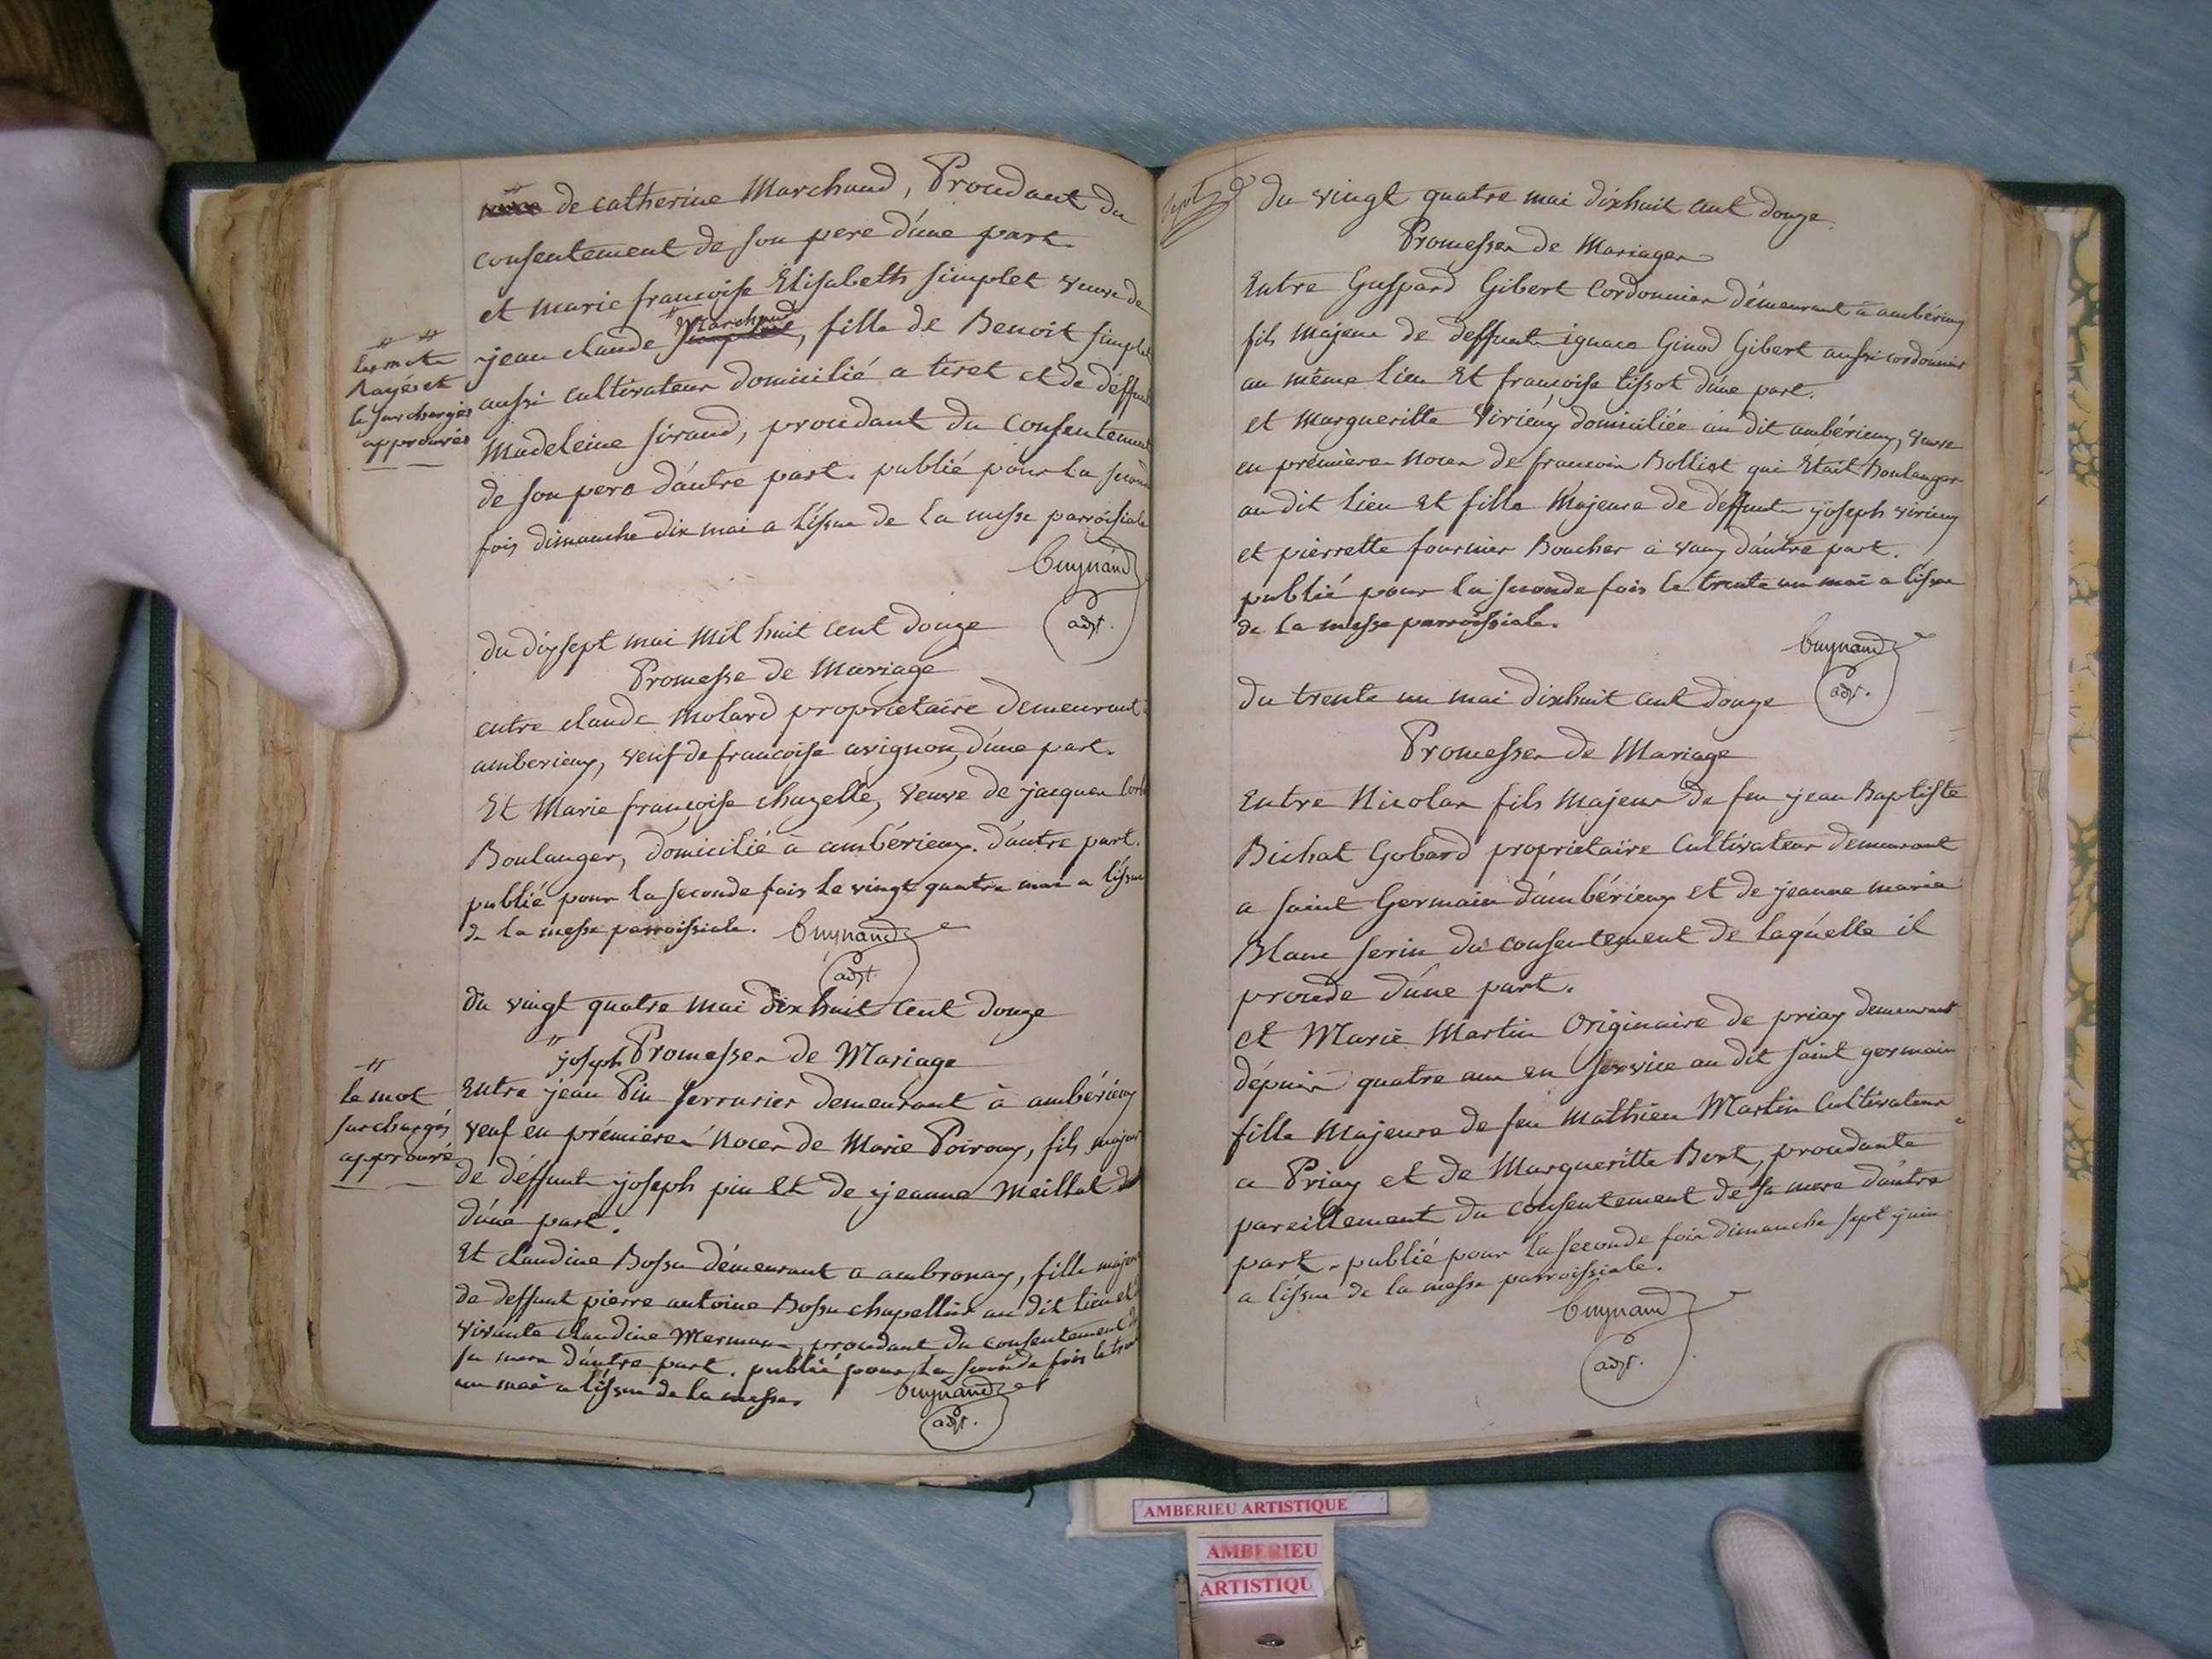 de catherine Marchand, Procédant du
consentement de son pere d'une part.
et marie françoise Elisabeth simplet veuve de
jean claude Marchand, fille de Benoit simplet
aussi cultivateur domicilié a tiret et de deffunte
Madeleine sirand, procédant du consentement
de son pere d'autre part. publié pour la seconde
fois dimanche dix mai a l'issue de la messe parroissiale
adjt.
les mots
Rayés et
le surchargés
approuvés
du dixsept mai mil huit cent douze
Promesse de Mariage
entre claude Molard proprietaire demeurant a
amberieux, veuf de françoise avignon, d'une part.
Et Marie françoise chazelle, veuve de jacques
Boulanger, domicilié à ambérieux. d'autre part.
publié pour la seconde fois le vingt quatre mai a l'issue
de la messe parroissiale.
adjt.
du vingt quatre mai dixhuit cent douze
joseph Promesses de Mariage
Entre jean Pin serrurier demeurant à ambérieux
veuf en prémieres noces de Marie Poiroux, fils majeur
de déffunt joseph pin et de jeanne Meillat
d'une part.
Et claudine Bossu démeurant a ambronay, fille majeure
de deffunt pierre antoine Bossu chapellier au dit lieu et
vivante claudine Mermans, procédant du consentement de
sa mere d'autre part. publié pour la seconde fois le trente
un mai a l'issue de la messe.
adjt.
le mot
surchargés
approuvé
du vingt quatre mai dixhuit cent douze
Promesses de Mariages
Entre Gaspard Gibert Cordonnier démeurant à ambérieux
fils majeur de deffunt ignace Ginod Gibert aussi cordonnier
au même lieu Et françoise tissot d'une part.
et Margueritte Virieux domiciliée au dit ambérieux, veuve
en prémieres noces de francois Bolliet qui Etait Boulanger
au dit lieu Et fille Majeure de déffunt joseph virieux
et pierrette fournier Boucher à vaux d'autre part.
publié pour la seconde fois le trente un mai a l'issue
de la messe parroissiale.
adjt.
du trente un mai dixhuit cent douze
Promesses de Mariage
Entre Nicolas fils majeur de feu jean Baptiste
Bichat Gobard proprietaire Cultivateur demeurant
a saint Germain d'ambérieux et de jeanne marie
Blanc serin du consentement de laquelle il
procede d'une part.
et Marie Martin Originaire de priay demeurant
dépuis quatre ans en service au dit saint germain
fille Majeure de feu Mathieu Martin Cultivateur
a Priay et de Margueritte Bert, procedante
pareillement du consentement de sa mere d'autre
part. publié pour la seconde fois dimanche sept juin
a l'issue de la messe parroissiale.
adjt.
AMBERIEU ARTISTIQUE
AMBERIEU
ARTISTIQU